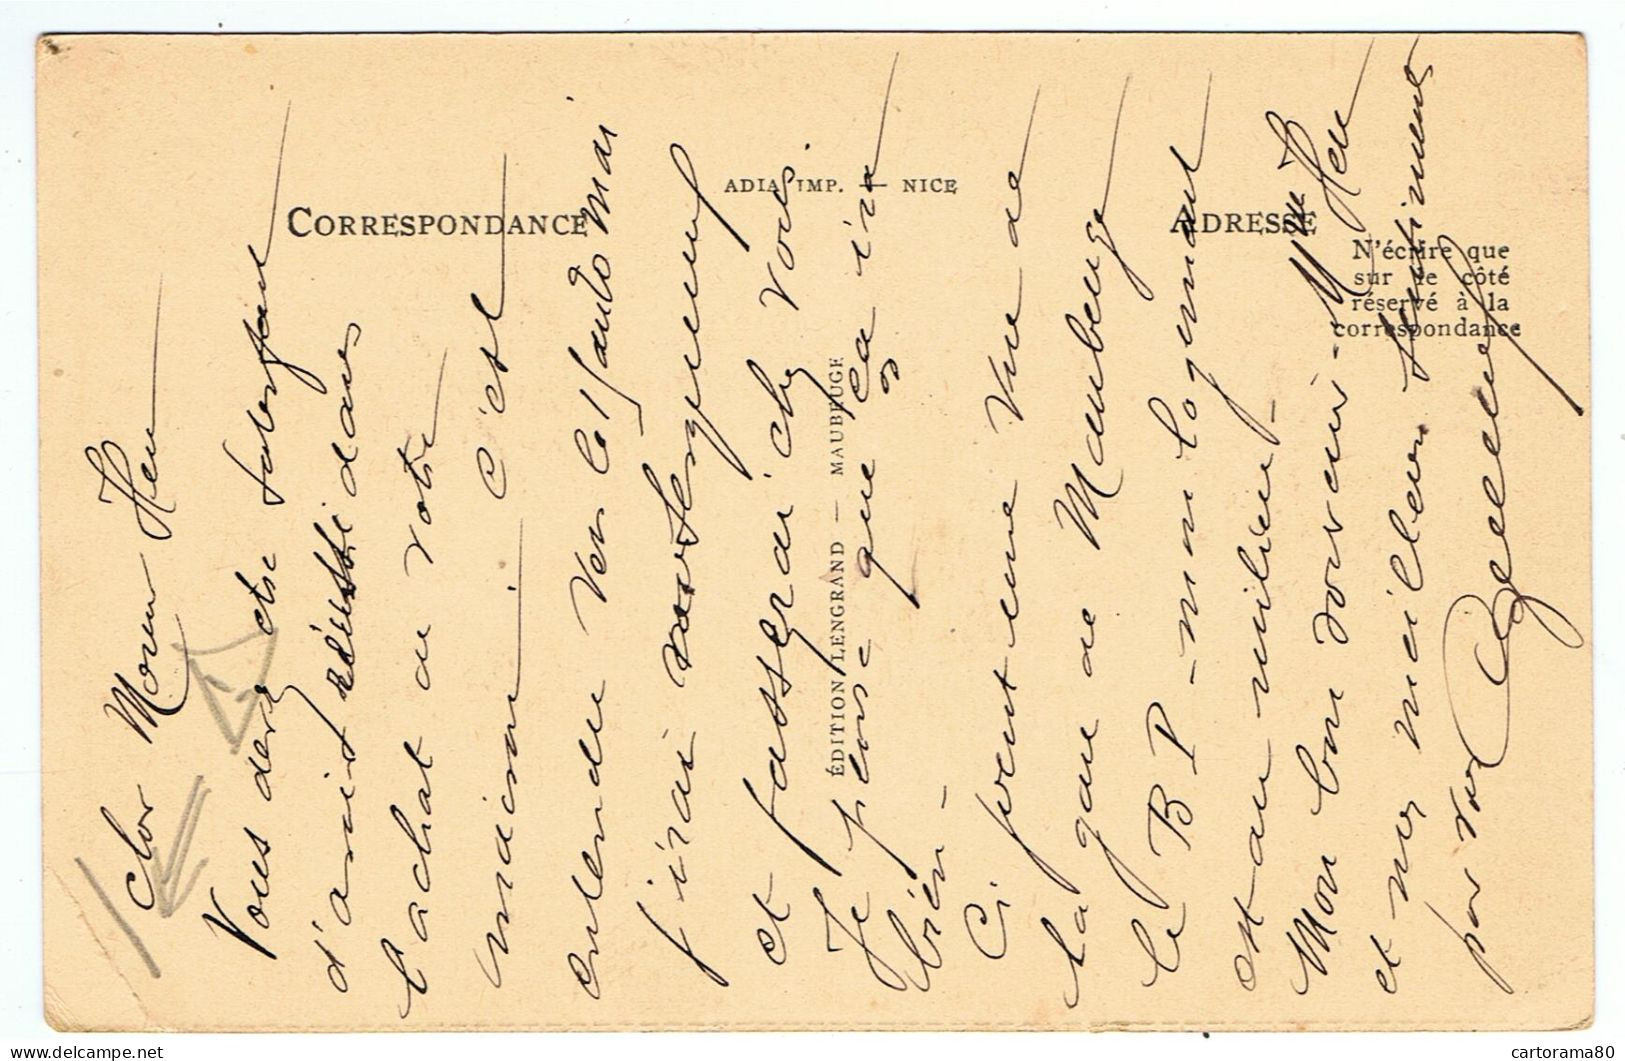 CORRESPONDANCE
ADIA IMP. — NICE
ADRESSE
N'écrire que
sur le côté
réservé à la
correspondance
ÉDITION LENGRAND — MAUBEUGE
Cher Monsieur Heu
Vous devez être
d'avoir réussi dans
l'achat de votre
maison. C'est
entendu vers le 15 Mai
j'irai
et passerai chez vous.
Je pense que ça ira
bien -
Ci joint une vue de
la gare de Maubeuge
le B P - mon logement
est au milieu -
Mon bon souvenir - à Mme Heu
et mes meilleurs sentiments
pour vous
cartorama80